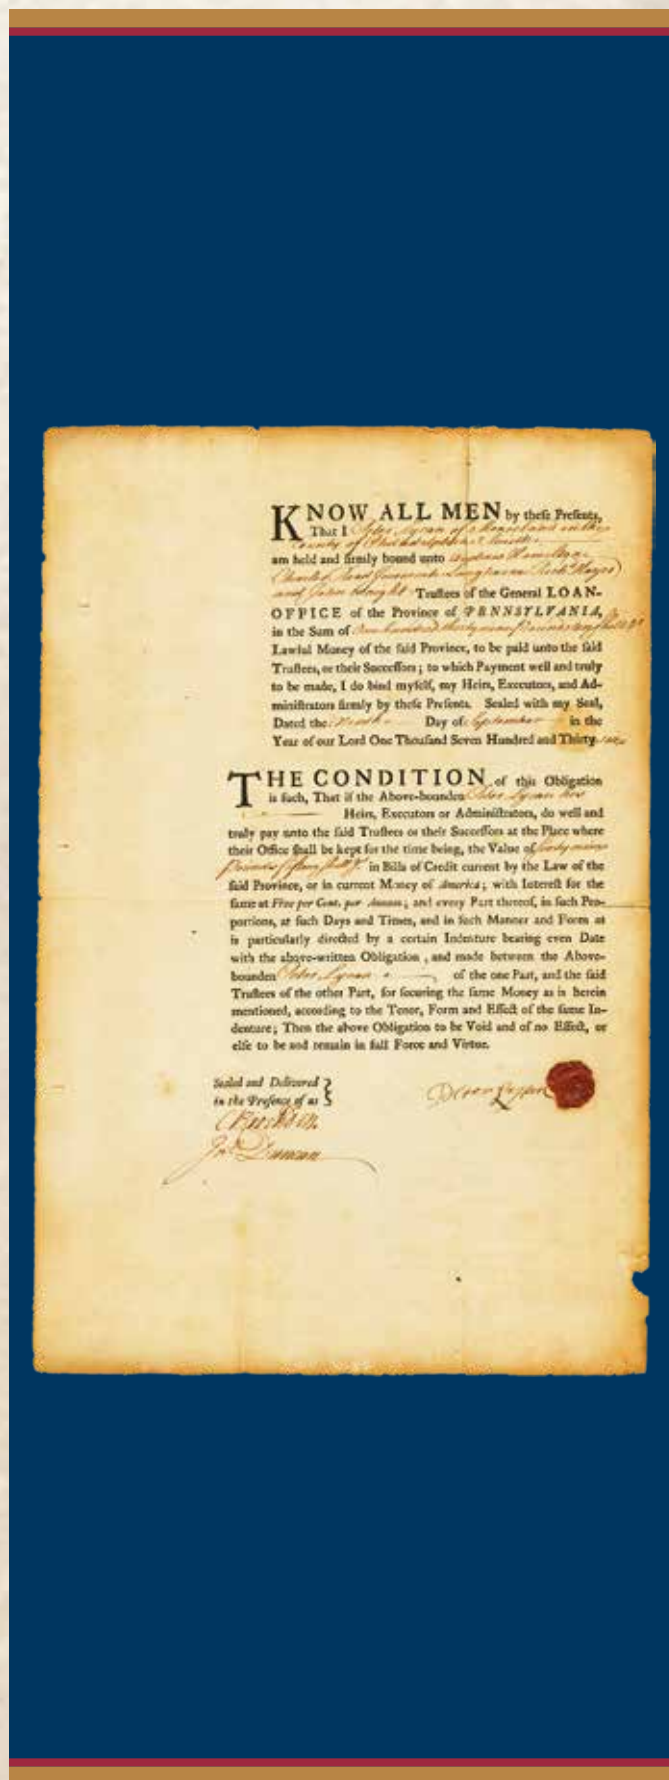 KNOW ALL MEN by theſe Preſents,
That I Peter Lycan of Moreland in the
County of Philadelphia
am held and firmly bound unto Andrew Hamilton
Charles Read Jeremiah Langhorne Richd. Hayes
and John Wright Truſtees of the General LOAN-
OFFICE of the Province of PENNSYLVANIA,
in the Sum of One hundred thirty nine Pounds
Lawful Money of the ſaid Province, to be paid unto the ſaid
Truſtees, or their Succeſſors; to which Payment well and truly
to be made, I do bind myſelf, my Heirs, Executors, and Ad-
miniſtrators firmly by theſe Preſents. Sealed with my Seal,
Dated the Day of September in the
Year of our Lord One Thouſand Seven Hundred and Thirty
THE CONDITION of this Obligation
is ſuch, That if the Above-bounden Peter Lycan his
Heirs, Executors or Adminiſtrators, do well and
truly pay unto the ſaid Truſtees or their Succeſſors at the Place where
their Office ſhall be kept for the time being, the Value of
Pounds in Bills of Credit current by the Law of the
ſaid Province, or in current Money of America; with Intereſt for the
ſame at Five per Cent. per Annum; and every Part thereof, in ſuch Pro-
portions, at ſuch Days and Times, and in ſuch Manner and Form as
is particularly directed by a certain Indenture bearing even Date
with the above-written Obligation, and made between the Above-
bounden Peter Lycan of the one Part, and the ſaid
Truſtees of the other Part, for ſecuring the ſame Money as is herein
mentioned, according to the Tenor, Form and Effect of the ſame In-
denture; Then the above Obligation to be Void and of no Effect, or
elſe to be and remain in full Force and Virtue.
Sealed and Delivered
in the Preſence of us
Jno. Duncan